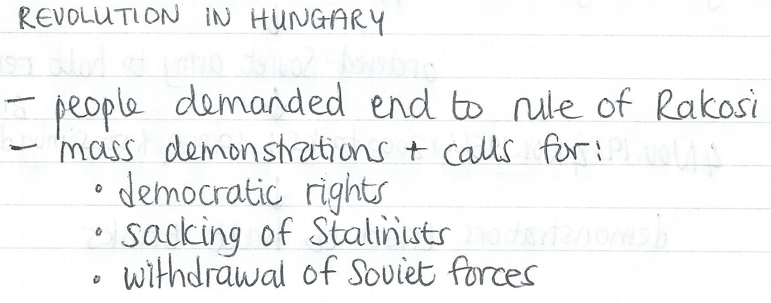 REVOLUTION IN HUNGARY
- people demanded end to rule of Rakosi
- mass demonstrations + calls for:
• democratic rights
• sacking of Stalinists
• withdrawal of Soviet forces